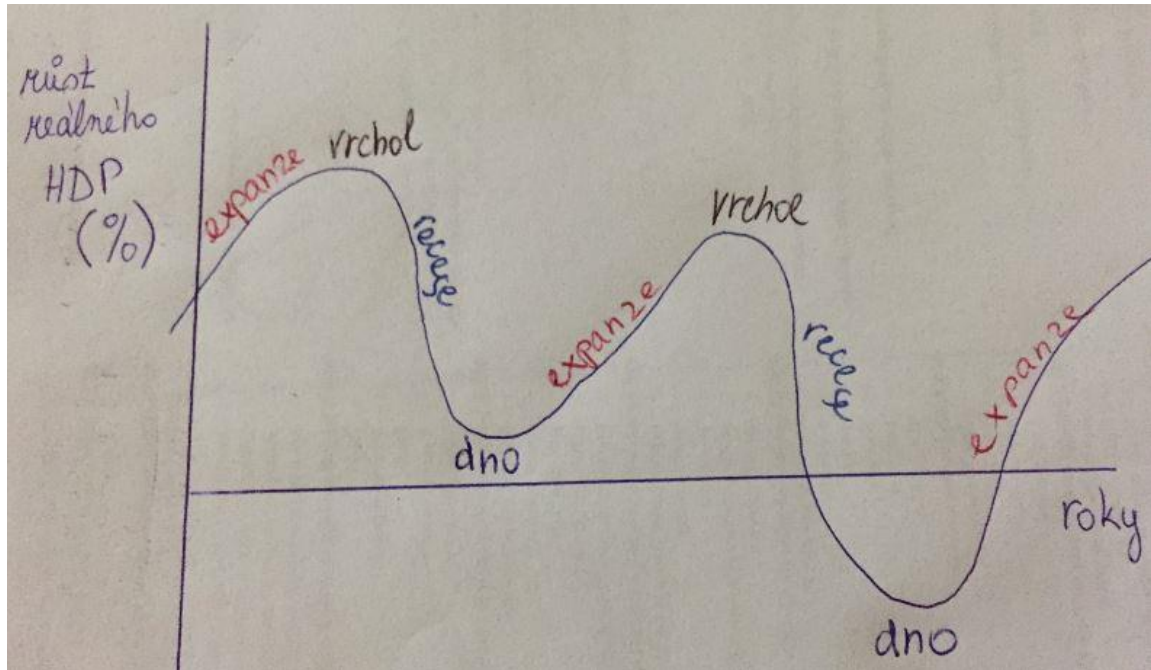 růst
reálného
HDP
(%)
expanze
vrchol
recese
dno
expanze
vrchol
recese
dno
expanze
roky